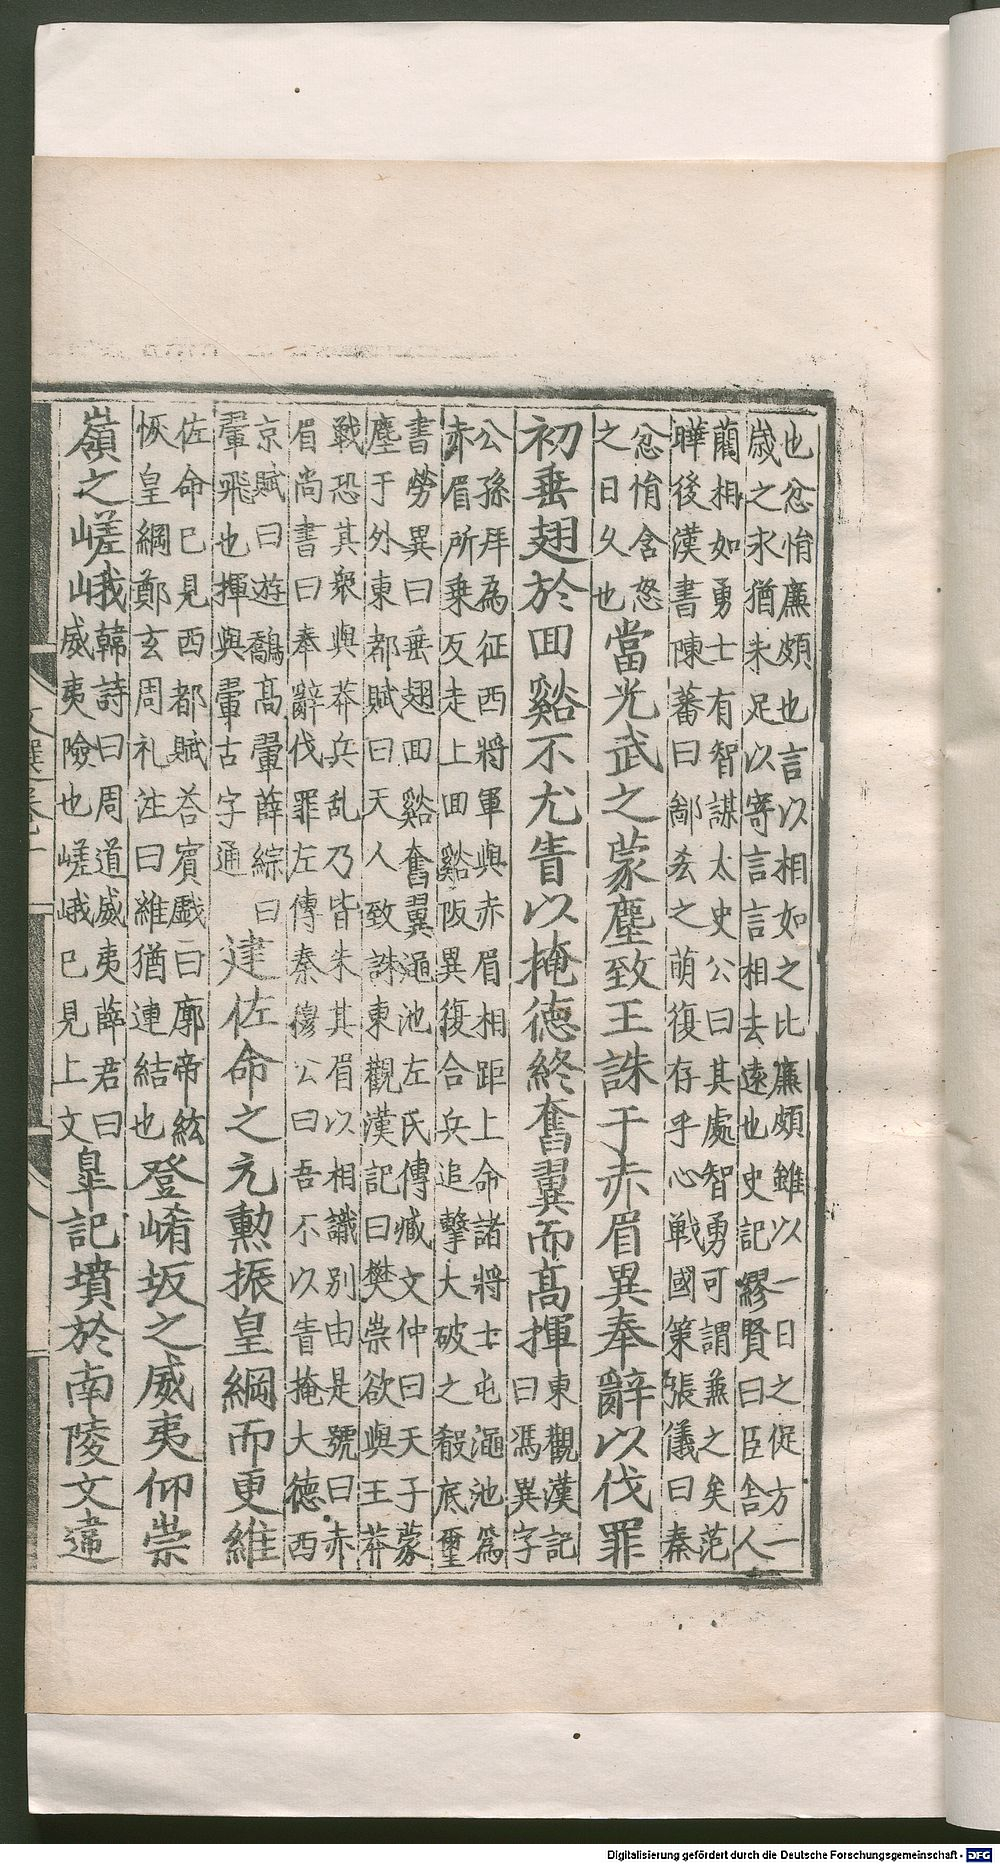 也忿悁廉頗也言以相如之比廉頗雖以一日之促方一
歲之求猶未足以寄言言相去遠也史記繆賢曰臣舍人
藺相如勇士有智謀太史公曰其處智勇可謂兼之矣范
曄後漢書陳蕃曰鄙𠫤之萌復存乎心戰國策張儀曰秦
忿悁含怒
之日久也
當光武之蒙塵致王誅于赤眉異奉辭以伐罪
初垂翅於回谿不尤眚以掩德終奮翼而高揮
東觀漢記
曰馮異字
公孫拜為征西將軍與赤眉相距上命諸將士屯澠池為
赤眉所乗反走上回谿阪異復合兵追擊大破之殽底璽
書勞異曰垂翅回谿奮翼澠池左氏傳臧文仲曰天子蒙
塵于外東都賦曰天人致誅東觀漢記曰樊崇欲與王莽
戰恐其衆與莽兵乱乃皆朱其眉以相識别由是號曰赤
眉尚書曰奉辭伐罪左傳秦穆公曰吾不以眚掩大德西
京賦曰遊鷮高翬薛綜曰
翬飛也揮與翬古字通
建佐命之元勳振皇綱而更維
佐命已見西都賦荅賓戲曰廓帝紘
恢皇綱鄭玄周礼注曰維猶連結也
登崤坂之威夷仰崇
嶺之嵯峨
韓詩曰周道威夷薛君曰
威夷險也嵯峨已見上文
臯記墳於南陵文違
Digitalisierung gefördert durch die Deutsche Forschungsgemeinschaft - DFG